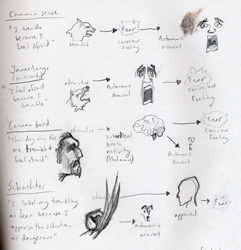 Common sense
"I tremble
because I
feel afraid"
stimulus
Fear
conscious
feeling
Autonomic
arousal
James-Lange
"I feel afraid
because I
tremble"
stimulus
Autonomic
Arousal
Fear
conscious
feeling
Cannon-Bard
"The dog makes
me tremble &
feel afraid"
stimulus
subcortical
brain
activity
(thalamus)
Fear
conscious
feeling
Autonomic
Arousal
Schachter
"I label my trembling
as fear because I
appraise the situation
as dangerous"
appraisal
Fear